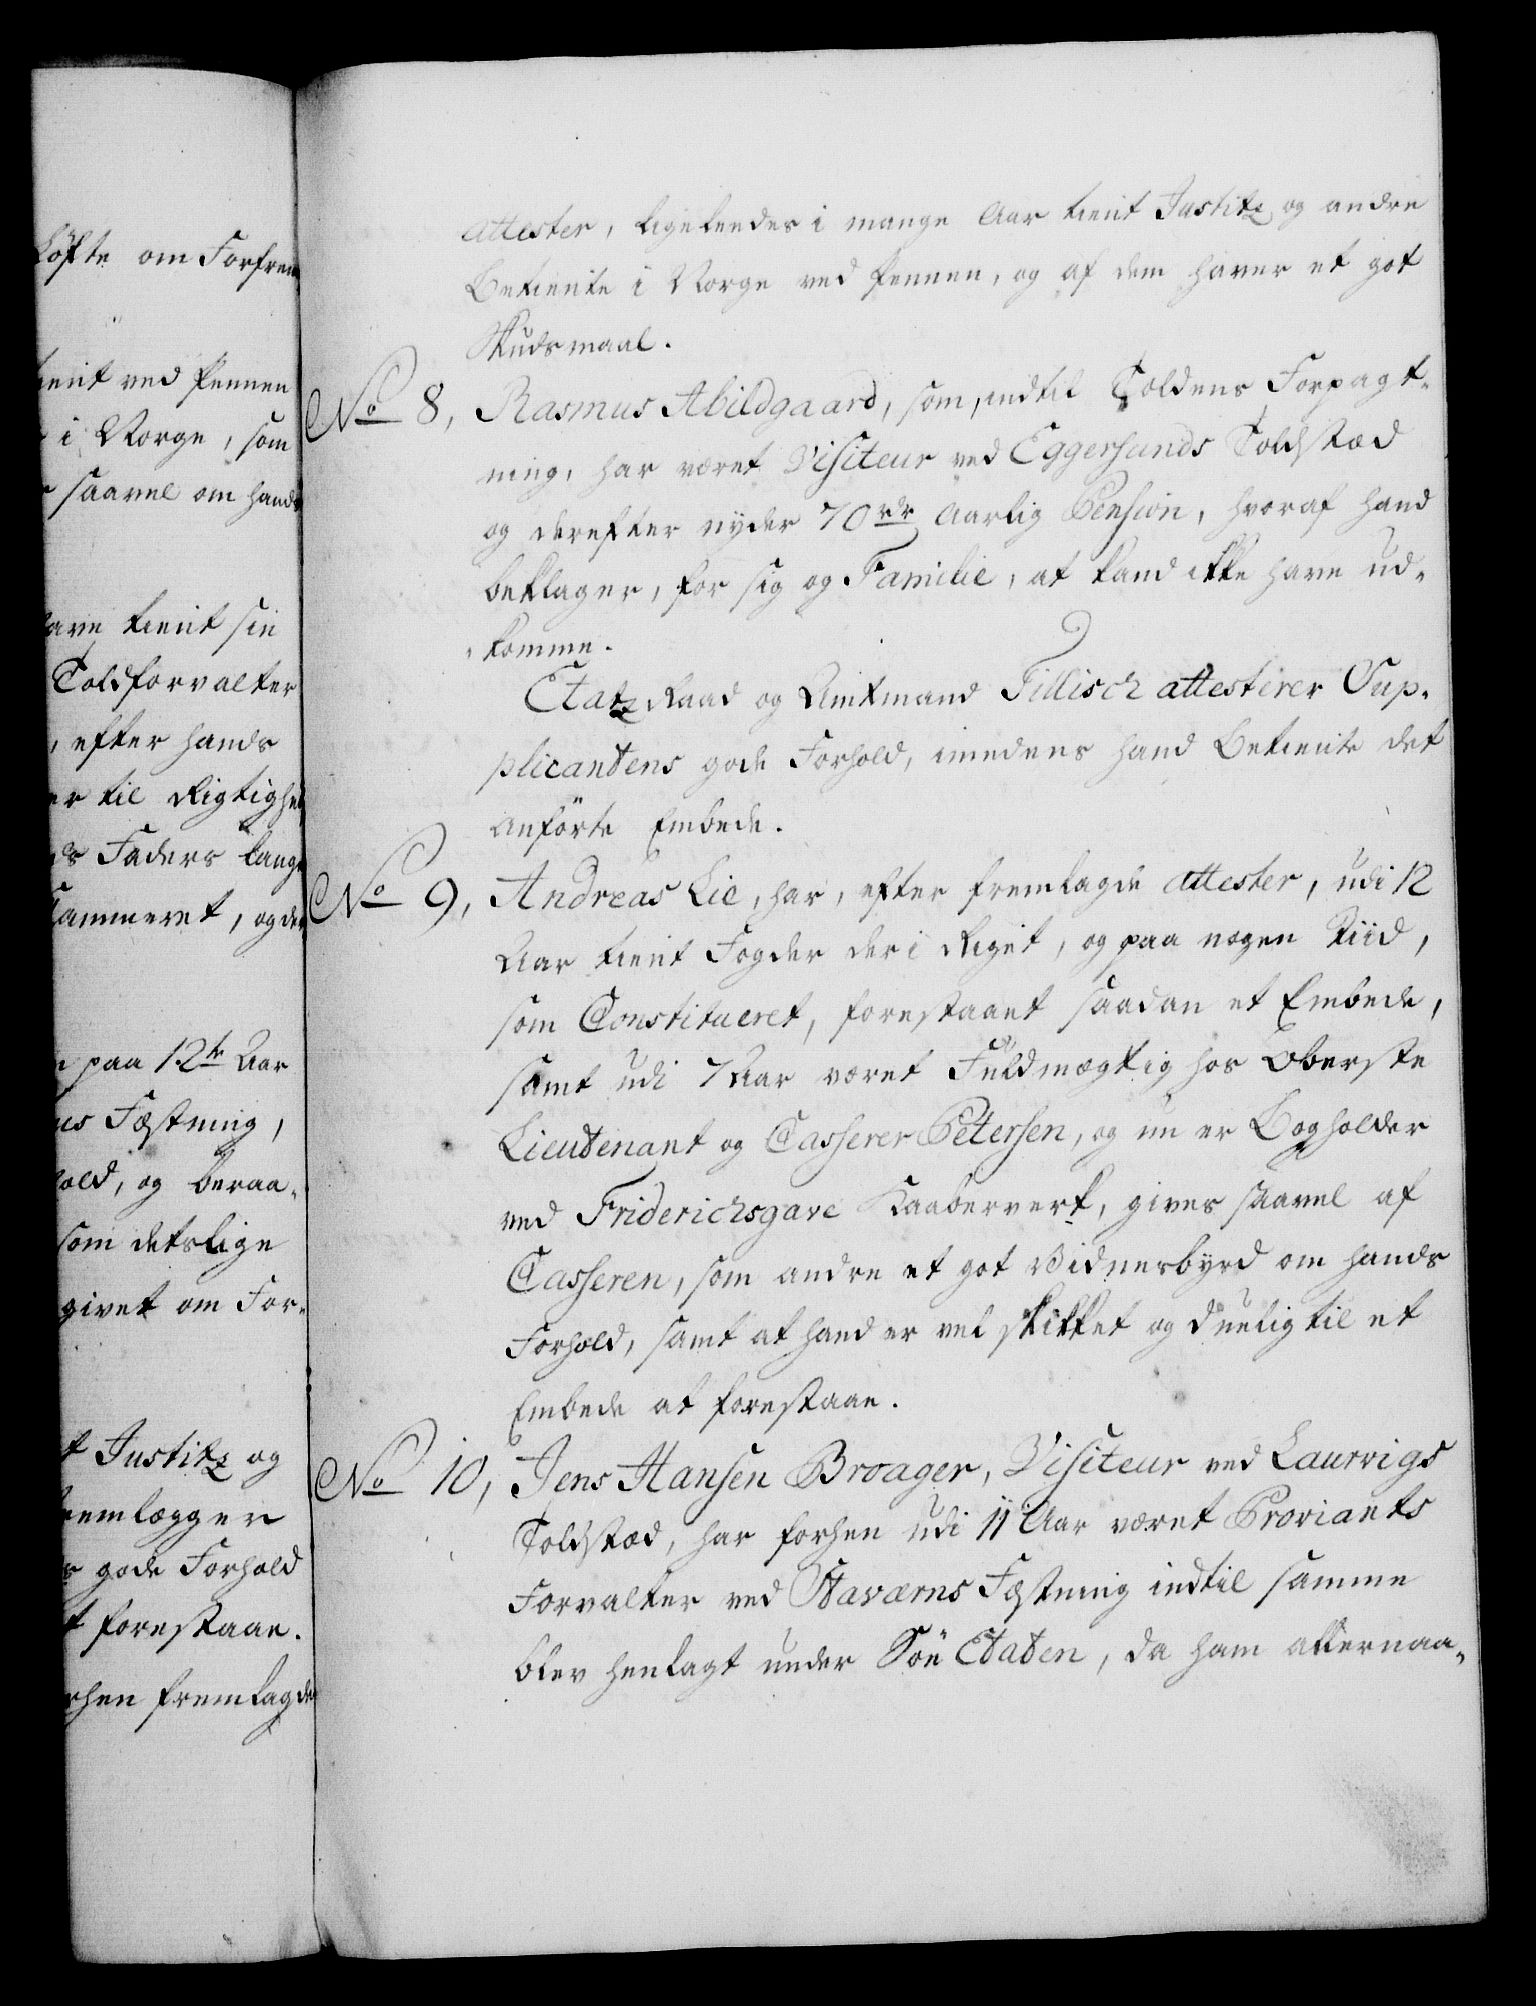 Löfte om Forfrem
tient ved Pennen
i Norge, som
saavel om hands
have tient sin
Toldforvalter
, efter hands
er til Rigtighed
ds Faders lange
Cammeret, og der
paa 12te Aar
Fæstning,
hold, og beraa-
som detslige
givet om For-
Justitz og
fremlægger
gode Forhold
at forestaae.
forhen fremlagde
attester, ligeleedes i mange Aar tient Justitz og andre
Betiente i Norge ved Pennen, og af dem haver et got
Skudsmaal.
No 8, Rasmus Abildgaard, som, indtil Toldens Forpagt-
ning, har været Visiteur ved Eggersunds Toldstæd
og derefter nyder 70 rdr Aarlig Pension, hvoraf hand
beklager, for sig og Familie, at kand ikke have ud-
komme.
Etatz Raad og Amtmand Tillisch attesterer Sup-
plicantens gode Forhold, imedens hand betiente det
anförte Embede.
No 9, Andreas Lie, har, efter fremlagde attester, udi 12
Aar tient Fogder der i Riget, og paa nogen Tiid,
som Constitueret, forestaaet saadan et Embede,
samt udi 7 Aar været Fuldmægtig hos Oberste
Lieutenant og Casserer Petersen, og nu er Bogholder
ved Friderichsgave Kaaberverk, gives saavel af
Casseren, som andre et got Vidnesbyrd om hands
Forhold, samt at hand er vel skikket og duelig til et
Embede at forestaae.
No 10, Jens Hansen Broager, Visiteur ved Laurvigs
Toldstæd, har forhen udi 11 Aar været Proviants
Forvalter ved Staværns Fæstning indtil samme
blev henlagt under Söe Etaten, da ham allernaa-